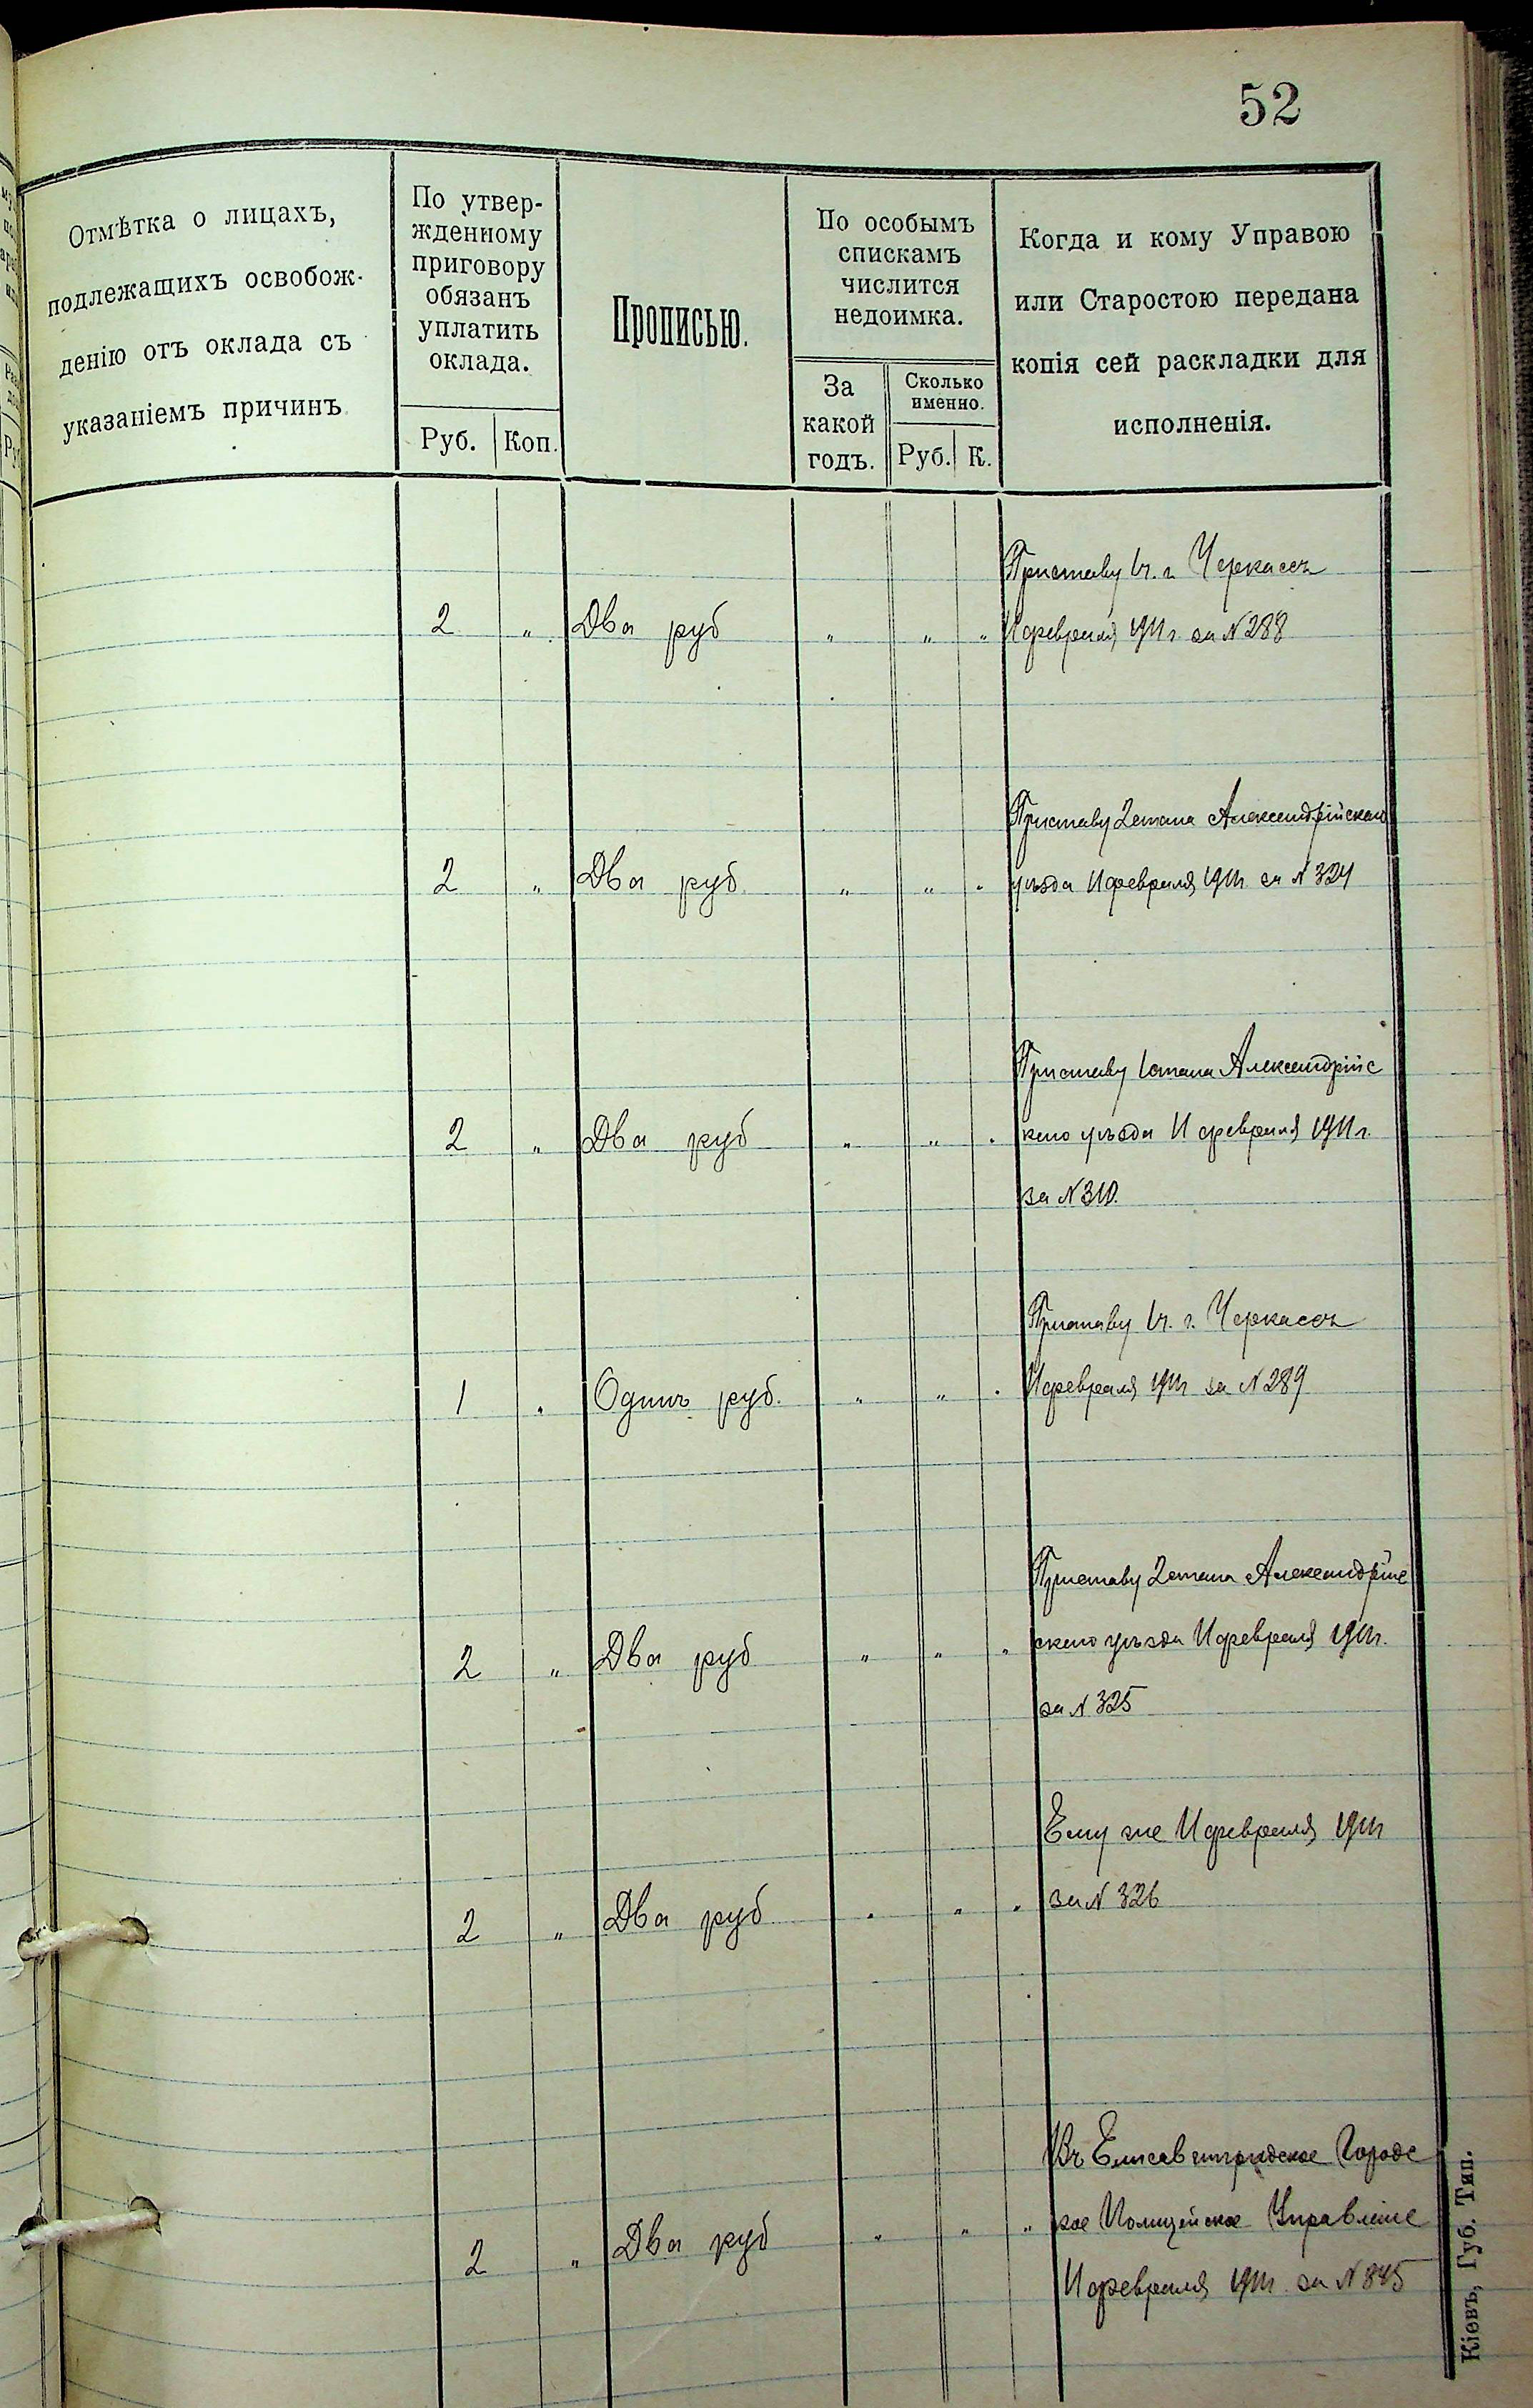 52
Отмѣтка о лицахъ,
подлежащихъ освобож-
денію отъ оклада съ
указаніемъ причинъ
По утвер-
жденному
приговору
обязанъ
уплатить
оклада.
Руб. Коп.
Прописью.
По особымъ
спискамъ
числится
недоимка.
За
какой
годъ.
Сколько
именно.
Руб. К.
Когда и кому Управою
или Старостою передана
копія сей раскладки для
исполненія.
Приставу 1ч. г. Черкассъ
2 " Два руб " " " 11 февраля 1911 г. за № 288
Приставу 2 стана Александрійскаго
2 " Два руб. " " " уѣзда 11 февраля 1911 г. за № 324
Приставу 1 стана Александрійс
2 " Два руб " " " каго уѣзда 11 февраля 1911 г.
за № 310.
Приставу 1ч. г. Черкассъ
1 " Одинъ руб. " " " 11 февраля 1911 г. за № 289
Приставу 2 стана Александрійс
2 " Два руб " " " скаго уѣзда 11 февраля 1911 г.
за № 325
Ему же 11 февраля 1911 г
2 " Два руб " " " за № 326
Въ Елисаветградское Городс
2 " Два руб " " " кое Полицейское Управленіе
11 февраля 1911 г. за № 345
Кіевъ, Губ. Тип.